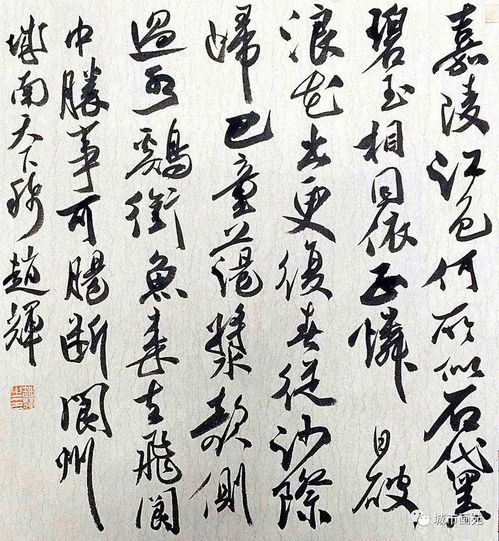 嘉陵江色何所似石黛
碧玉相因依正憐日破
浪花出更復春從沙際
歸巴童蕩槳欹側
過水鷄銜魚來去飛閬
中勝事可腸斷閬州
城南天下稀趙輝
城市画苑